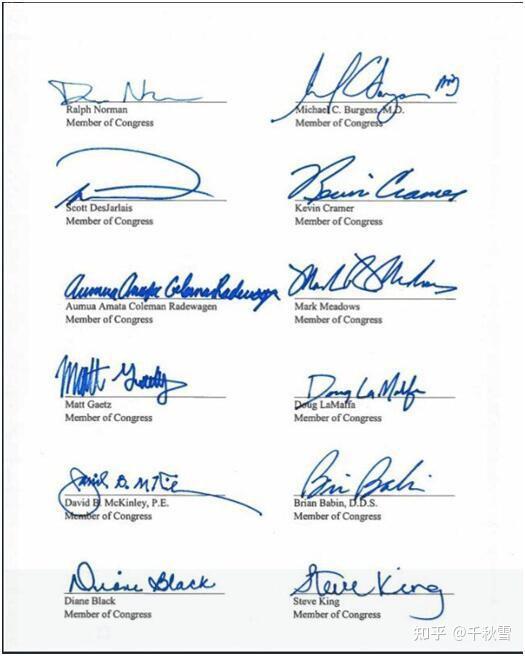 Ralph Norman
Member of Congress
Michael C. Burgess, M.D.
Member of Congress
Scott DesJarlais
Member of Congress
Kevin Cramer
Kevin Cramer
Member of Congress
Aumua Amata Coleman Radewagen
Aumua Amata Coleman Radewagen
Member of Congress
Mark Meadows
Member of Congress
Matt
Matt Gaetz
Member of Congress
Doug LaMalfa
Doug LaMalfa
Member of Congress
David B. McKinley, P.E.
Member of Congress
Brian Babin
Brian Babin, D.D.S.
Member of Congress
Diane Black
Diane Black
Member of Congress
Steve King
Steve King
Member of Congress
知乎 @千秋雪